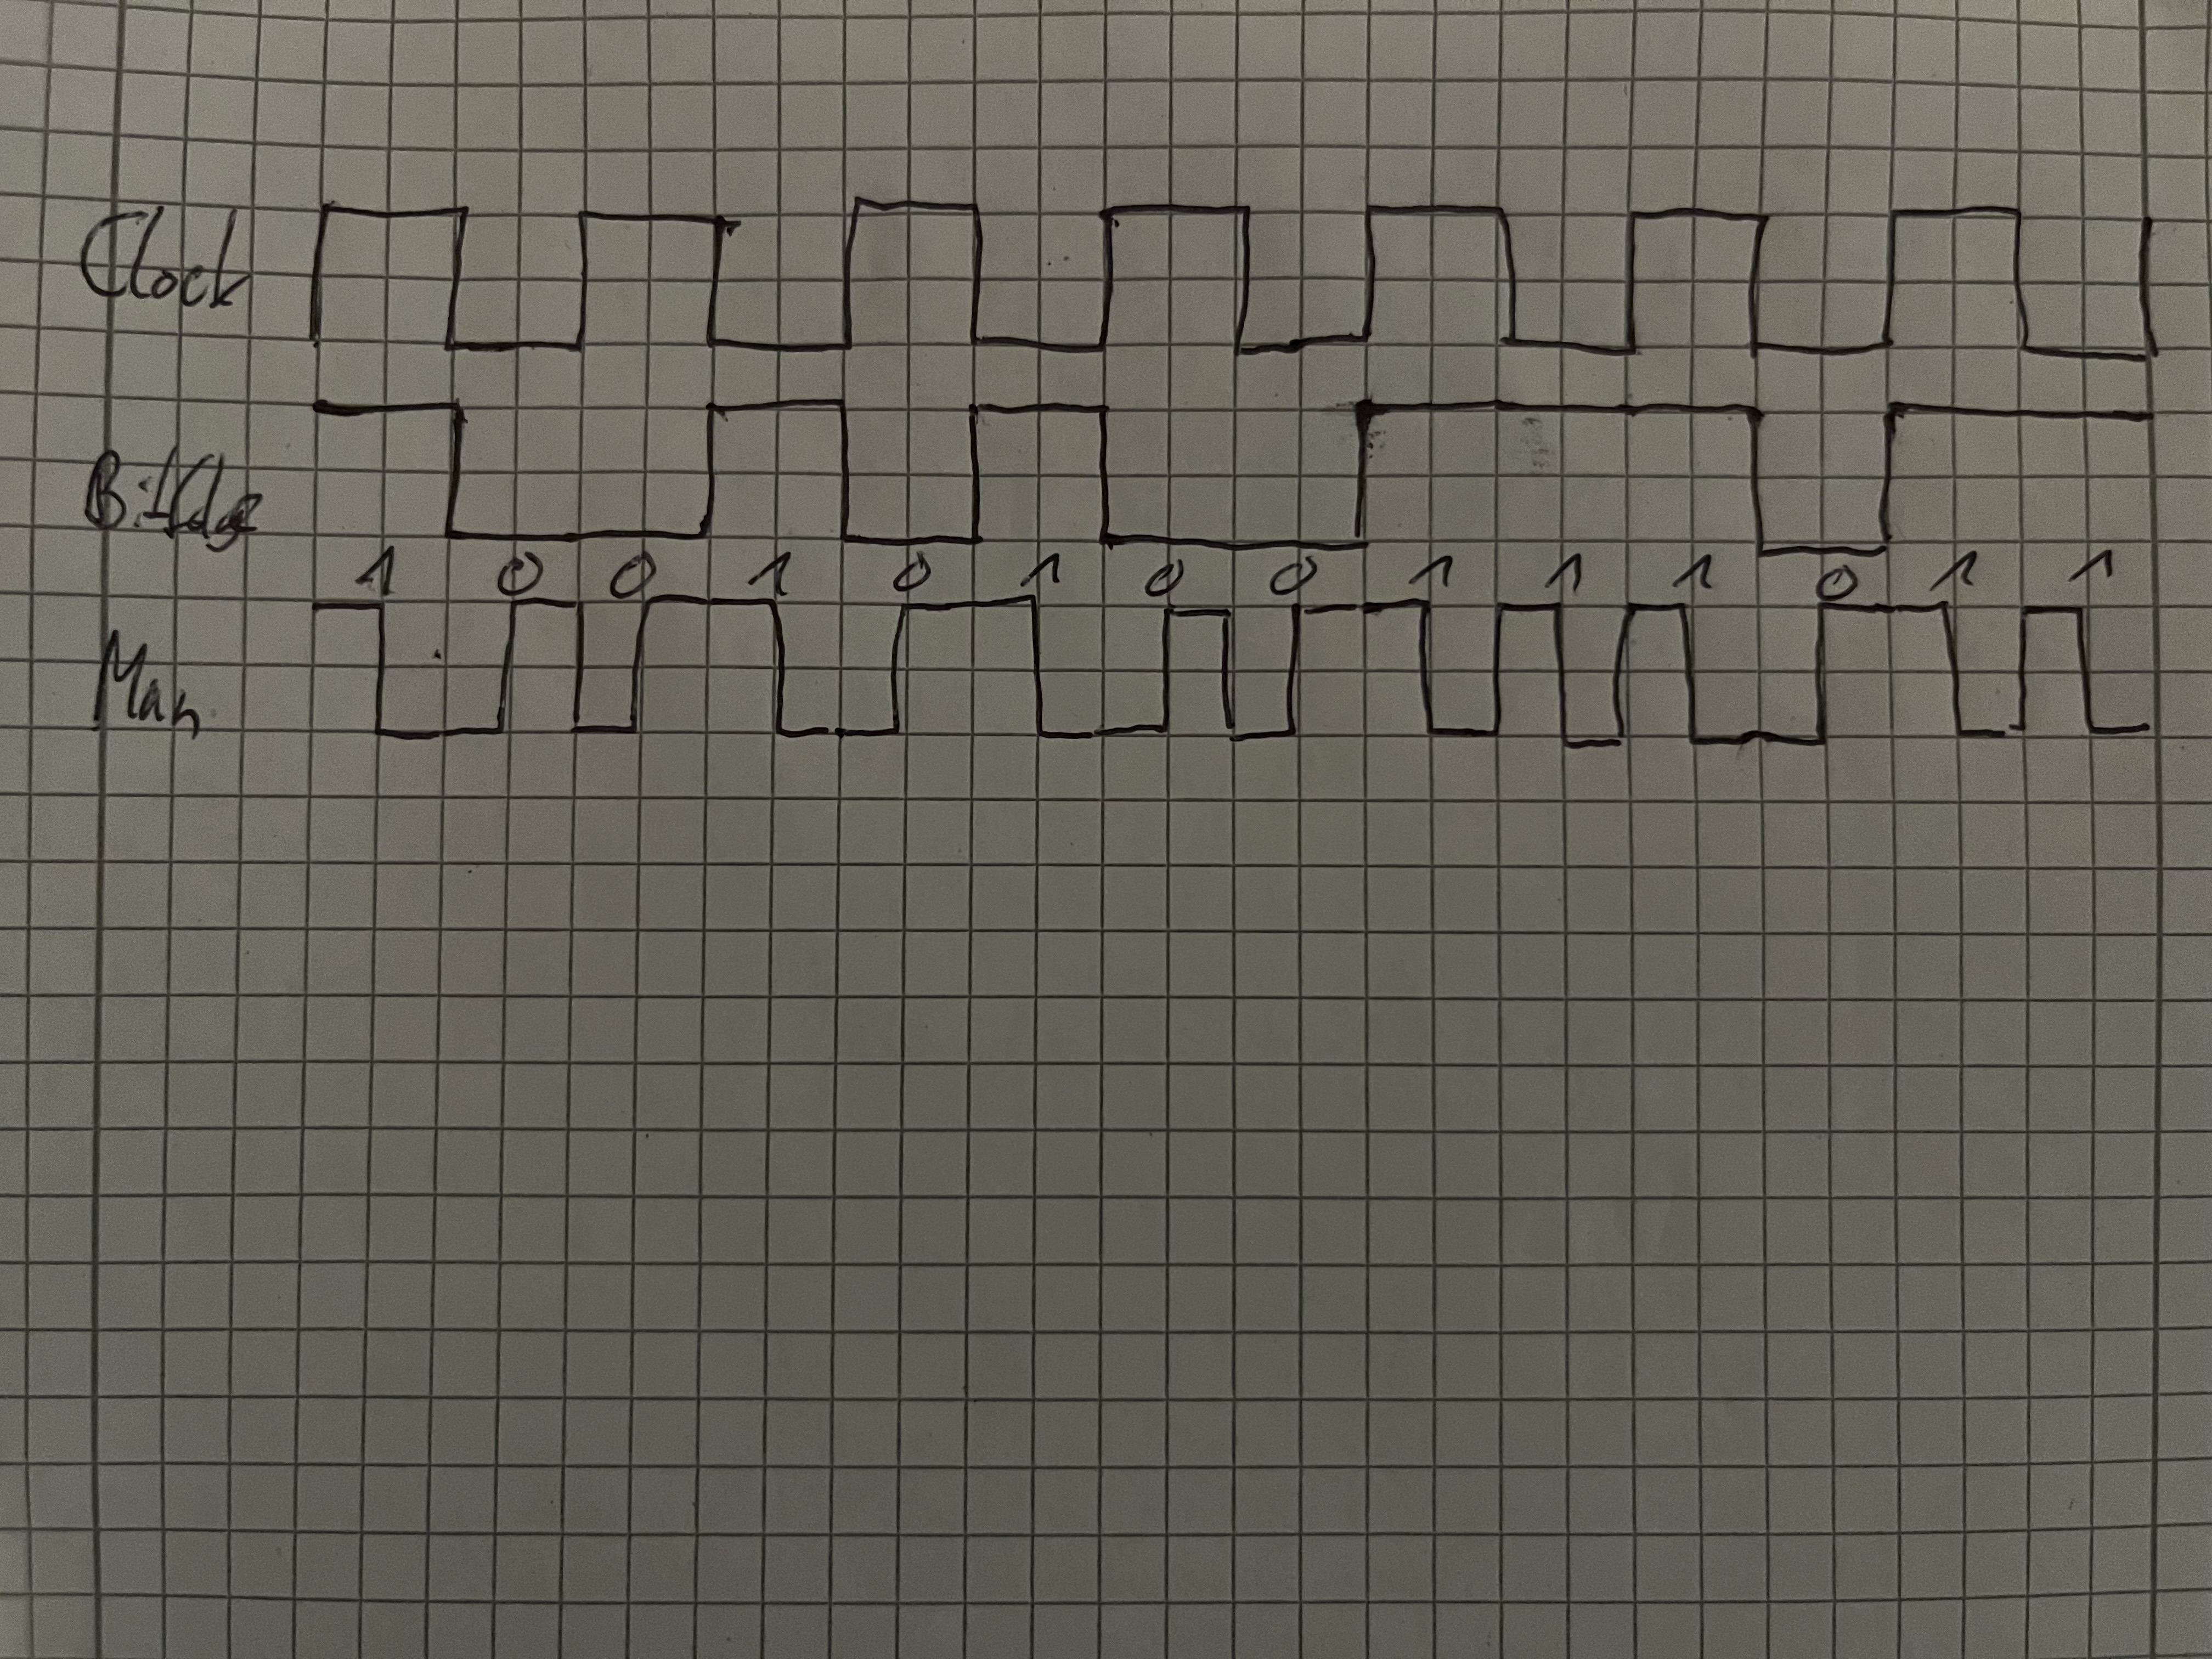 Clock
Bitfolge
1 0 0 1 0 1 0 0 1 1 1 0 1 1
Man